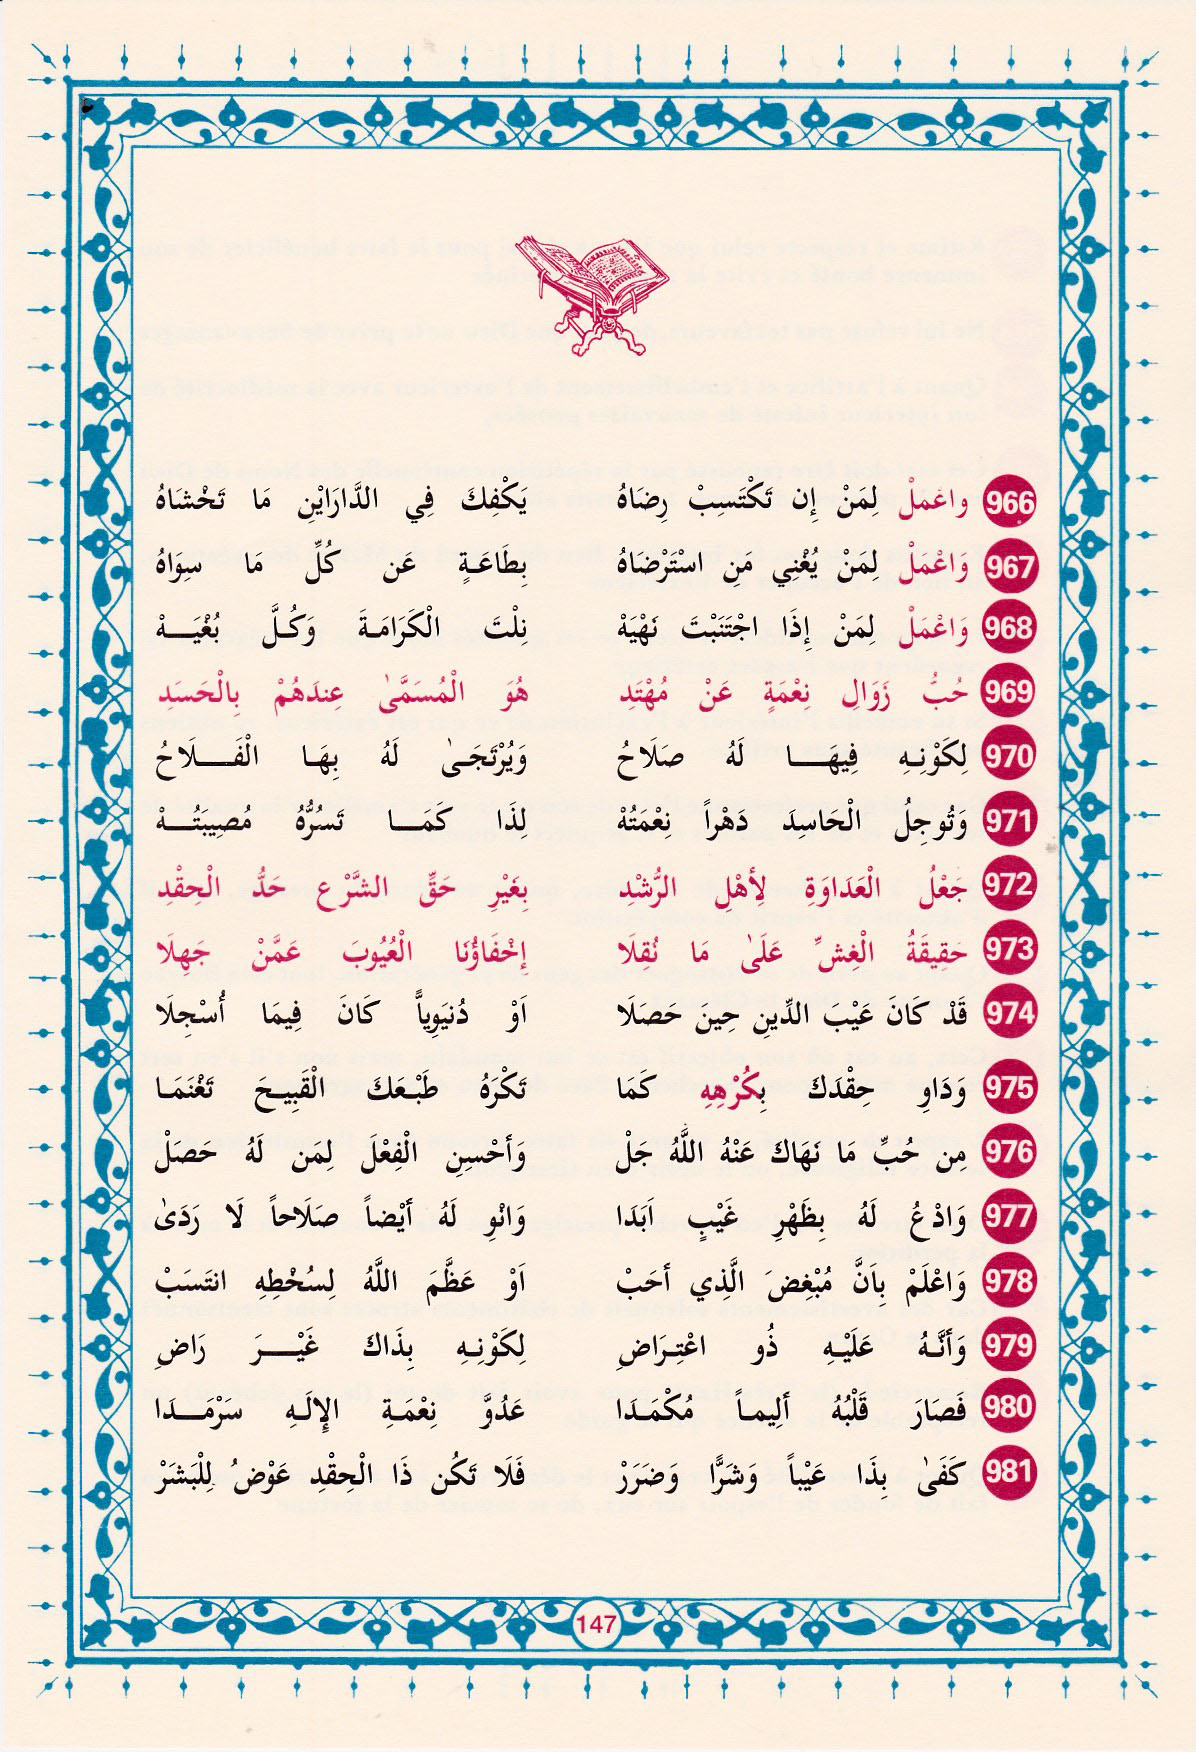 966 وَاعْمَلْ لِمَنْ إِن تَكْتَسِبْ رِضَاهُ يَكْفِكَ فِي الدَّارَايْنِ مَا تَخْشَاهُ
967 وَاعْمَلْ لِمَنْ يُغْنِي مَنِ اسْتَرْضَاهُ بِطَاعَةٍ عَن كُلِّ مَا سِوَاهُ
968 وَاعْمَلْ لِمَنْ إِذَا اجْتَنَبْتَ نَهْيَهْ نِلْتَ الْكَرَامَةَ وَكُلَّ بُغْيَهْ
969 حُبُّ زَوَالِ نِعْمَةٍ عَنْ مُهْتَدِ هُوَ الْمُسَمَّىٰ عِندَهُمْ بِالْحَسَدِ
970 لِكَوْنِهِ فِيهَا لَهُ صَلَاحُ وَيُرْتَجَىٰ لَهُ بِهَا الْفَلَاحُ
971 وَتُوجِلُ الْحَاسِدَ دَهْراً نِعْمَتُهْ لِذَا كَمَا تَسُرُّهُ مُصِيبَتُهْ
972 جَعْلُ الْعَدَاوَةِ لِأَهْلِ الرُّشْدِ بِغَيْرِ حَقِّ الشَّرْعِ حَدُّ الْحِقْدِ
973 حَقِيقَةُ الْغِشِّ عَلَىٰ مَا نُقِلَا إِخْفَاؤُنَا الْعُيُوبَ عَمَّنْ جَهِلَا
974 قَدْ كَانَ عَيْبَ الدِّينِ حِينَ حَصَلَا اَوْ دُنيَوِياًّ كَانَ فِيمَا أُسْجِلَا
975 وَدَاوِ حِقْدَكَ بِكُرْهِهِ كَمَا تَكْرَهُ طَبْعَكَ الْقَبِيحَ تَغْنَمَا
976 مِن حُبِّ مَا نَهَاكَ عَنْهُ اللَّهُ جَلْ وَأَحْسِنِ الْفِعْلَ لِمَن لَهُ حَصَلْ
977 وَادْعُ لَهُ بِظَهْرِ غَيْبٍ اَبَدَا وَانْوِ لَهُ أَيْضاً صَلَاحاً لَا رَدَىٰ
978 وَاعْلَمْ بِاَنَّ مُبْغِضَ الَّذِي أَحَبْ اَوْ عَظَّمَ اللَّهُ لِسُخْطِهِ انتَسَبْ
979 وَأَنَّهُ عَلَيْهِ ذُو اعْتِرَاضِ لِكَوْنِهِ بِذَاكَ غَيْرَ رَاضِ
980 فَصَارَ قَلْبُهُ أَلِيماً مُكْمَدَا عَدُوَّ نِعْمَةِ الإِلَهِ سَرْمَدَا
981 كَفَىٰ بِذَا عَيْباً وَشَرًّا وَضَرَرْ فَلَا تَكُن ذَا الْحِقْدِ عَوْضُ لِلْبَشَرْ
147